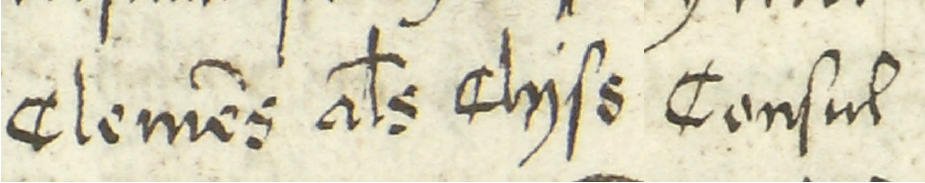 Clemēs als Chyss Consul